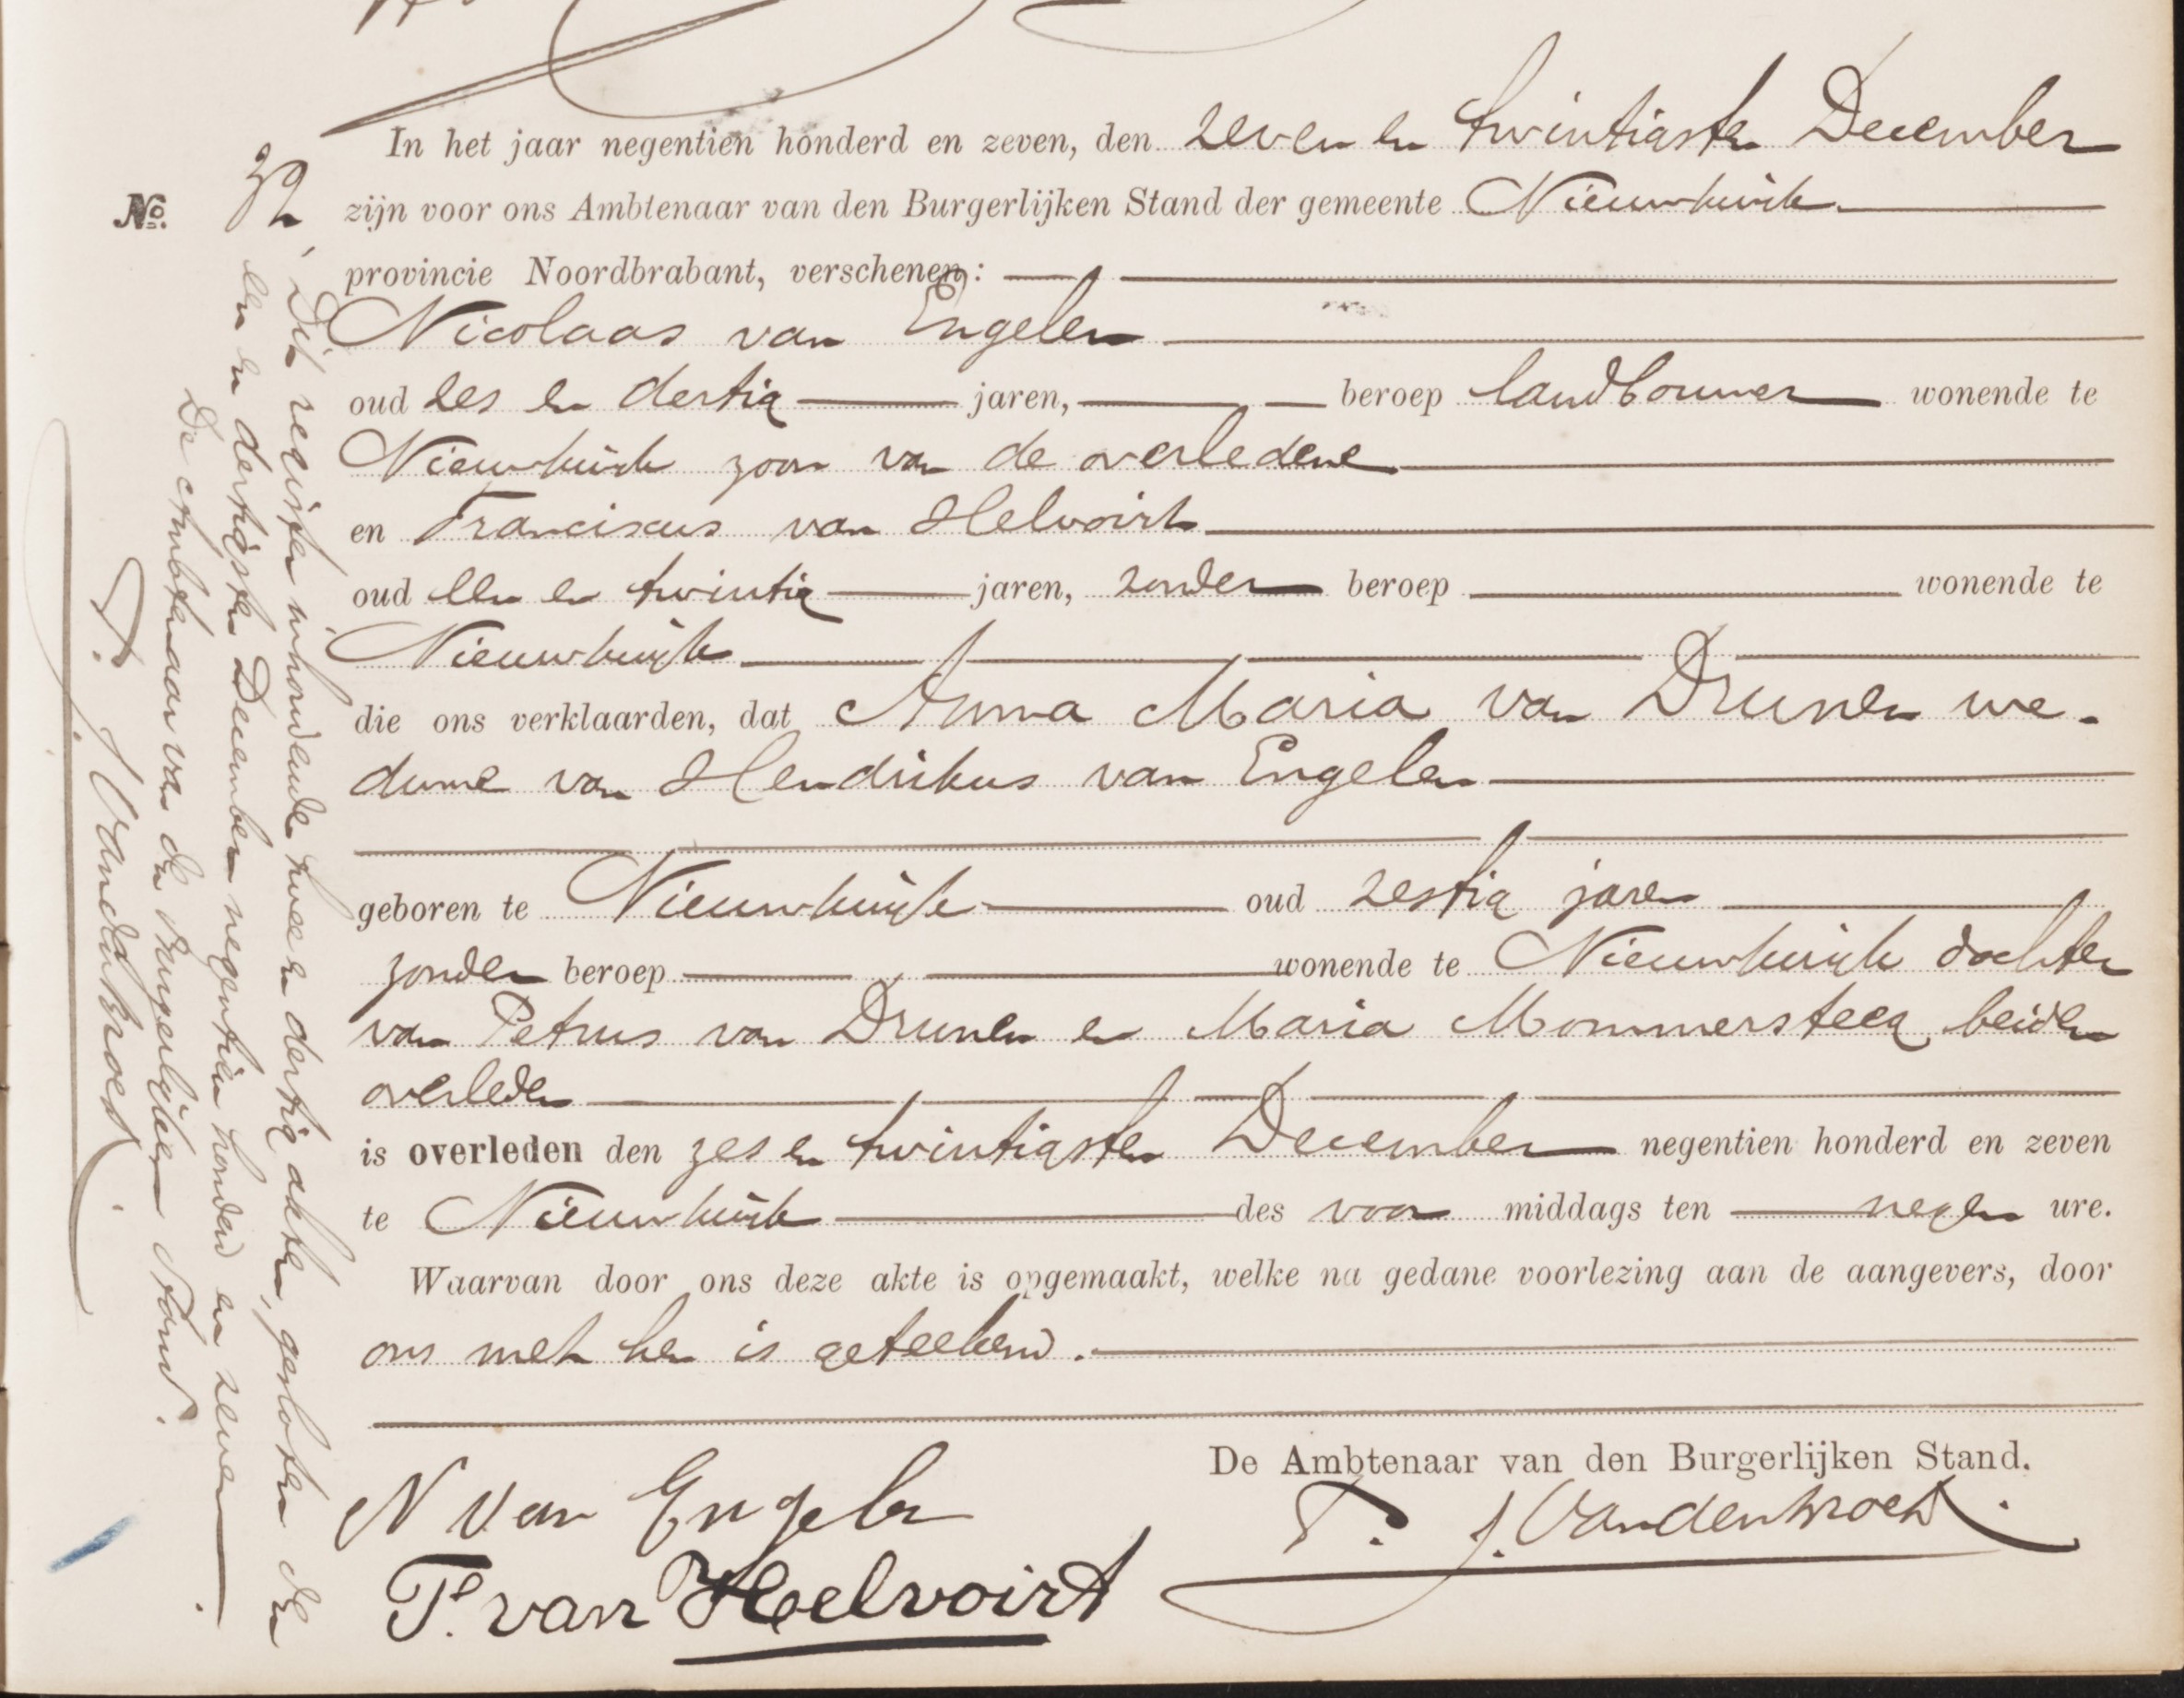 In het jaar negentien honderd en zeven, den zeven en twintigsten December
No. 32
zijn voor ons Ambtenaar van den Burgerlijken Stand der gemeente Nieuwkuik
provincie Noordbrabant, verschenen:
Nicolaas van Engelen
oud zes en dertig jaren, beroep landbouwer wonende te
Nieuwkuik zoon van de overledene
en Franciscus van Helvoirt
oud een en twintig jaren, zonder beroep wonende te
Nieuwkuijk
die ons verklaarden, dat Anna Maria van Drunen we-
duwe van Hendrikus van Engelen
geboren te Nieuwkuijk oud zestig jaren
zonder beroep wonende te Nieuwkuijk dochter
van Petrus van Drunen en Maria Mommersteeg beiden
overleden
is overleden den zes en twintigsten December negentien honderd en zeven
te Nieuwkuik des voor middags ten negen ure.
Waarvan door ons deze akte is opgemaakt, welke na gedane voorlezing aan de aangevers, door
ons met hen is geteekend.
De Ambtenaar van den Burgerlijken Stand.
N van Engelen
F. van Helvoirt
Dit register inhoudende twee en dertig akten, gesloten den
een en dertigsten December negentien honderd en zeven
De Ambtenaar van den Burgerlijken Stand.